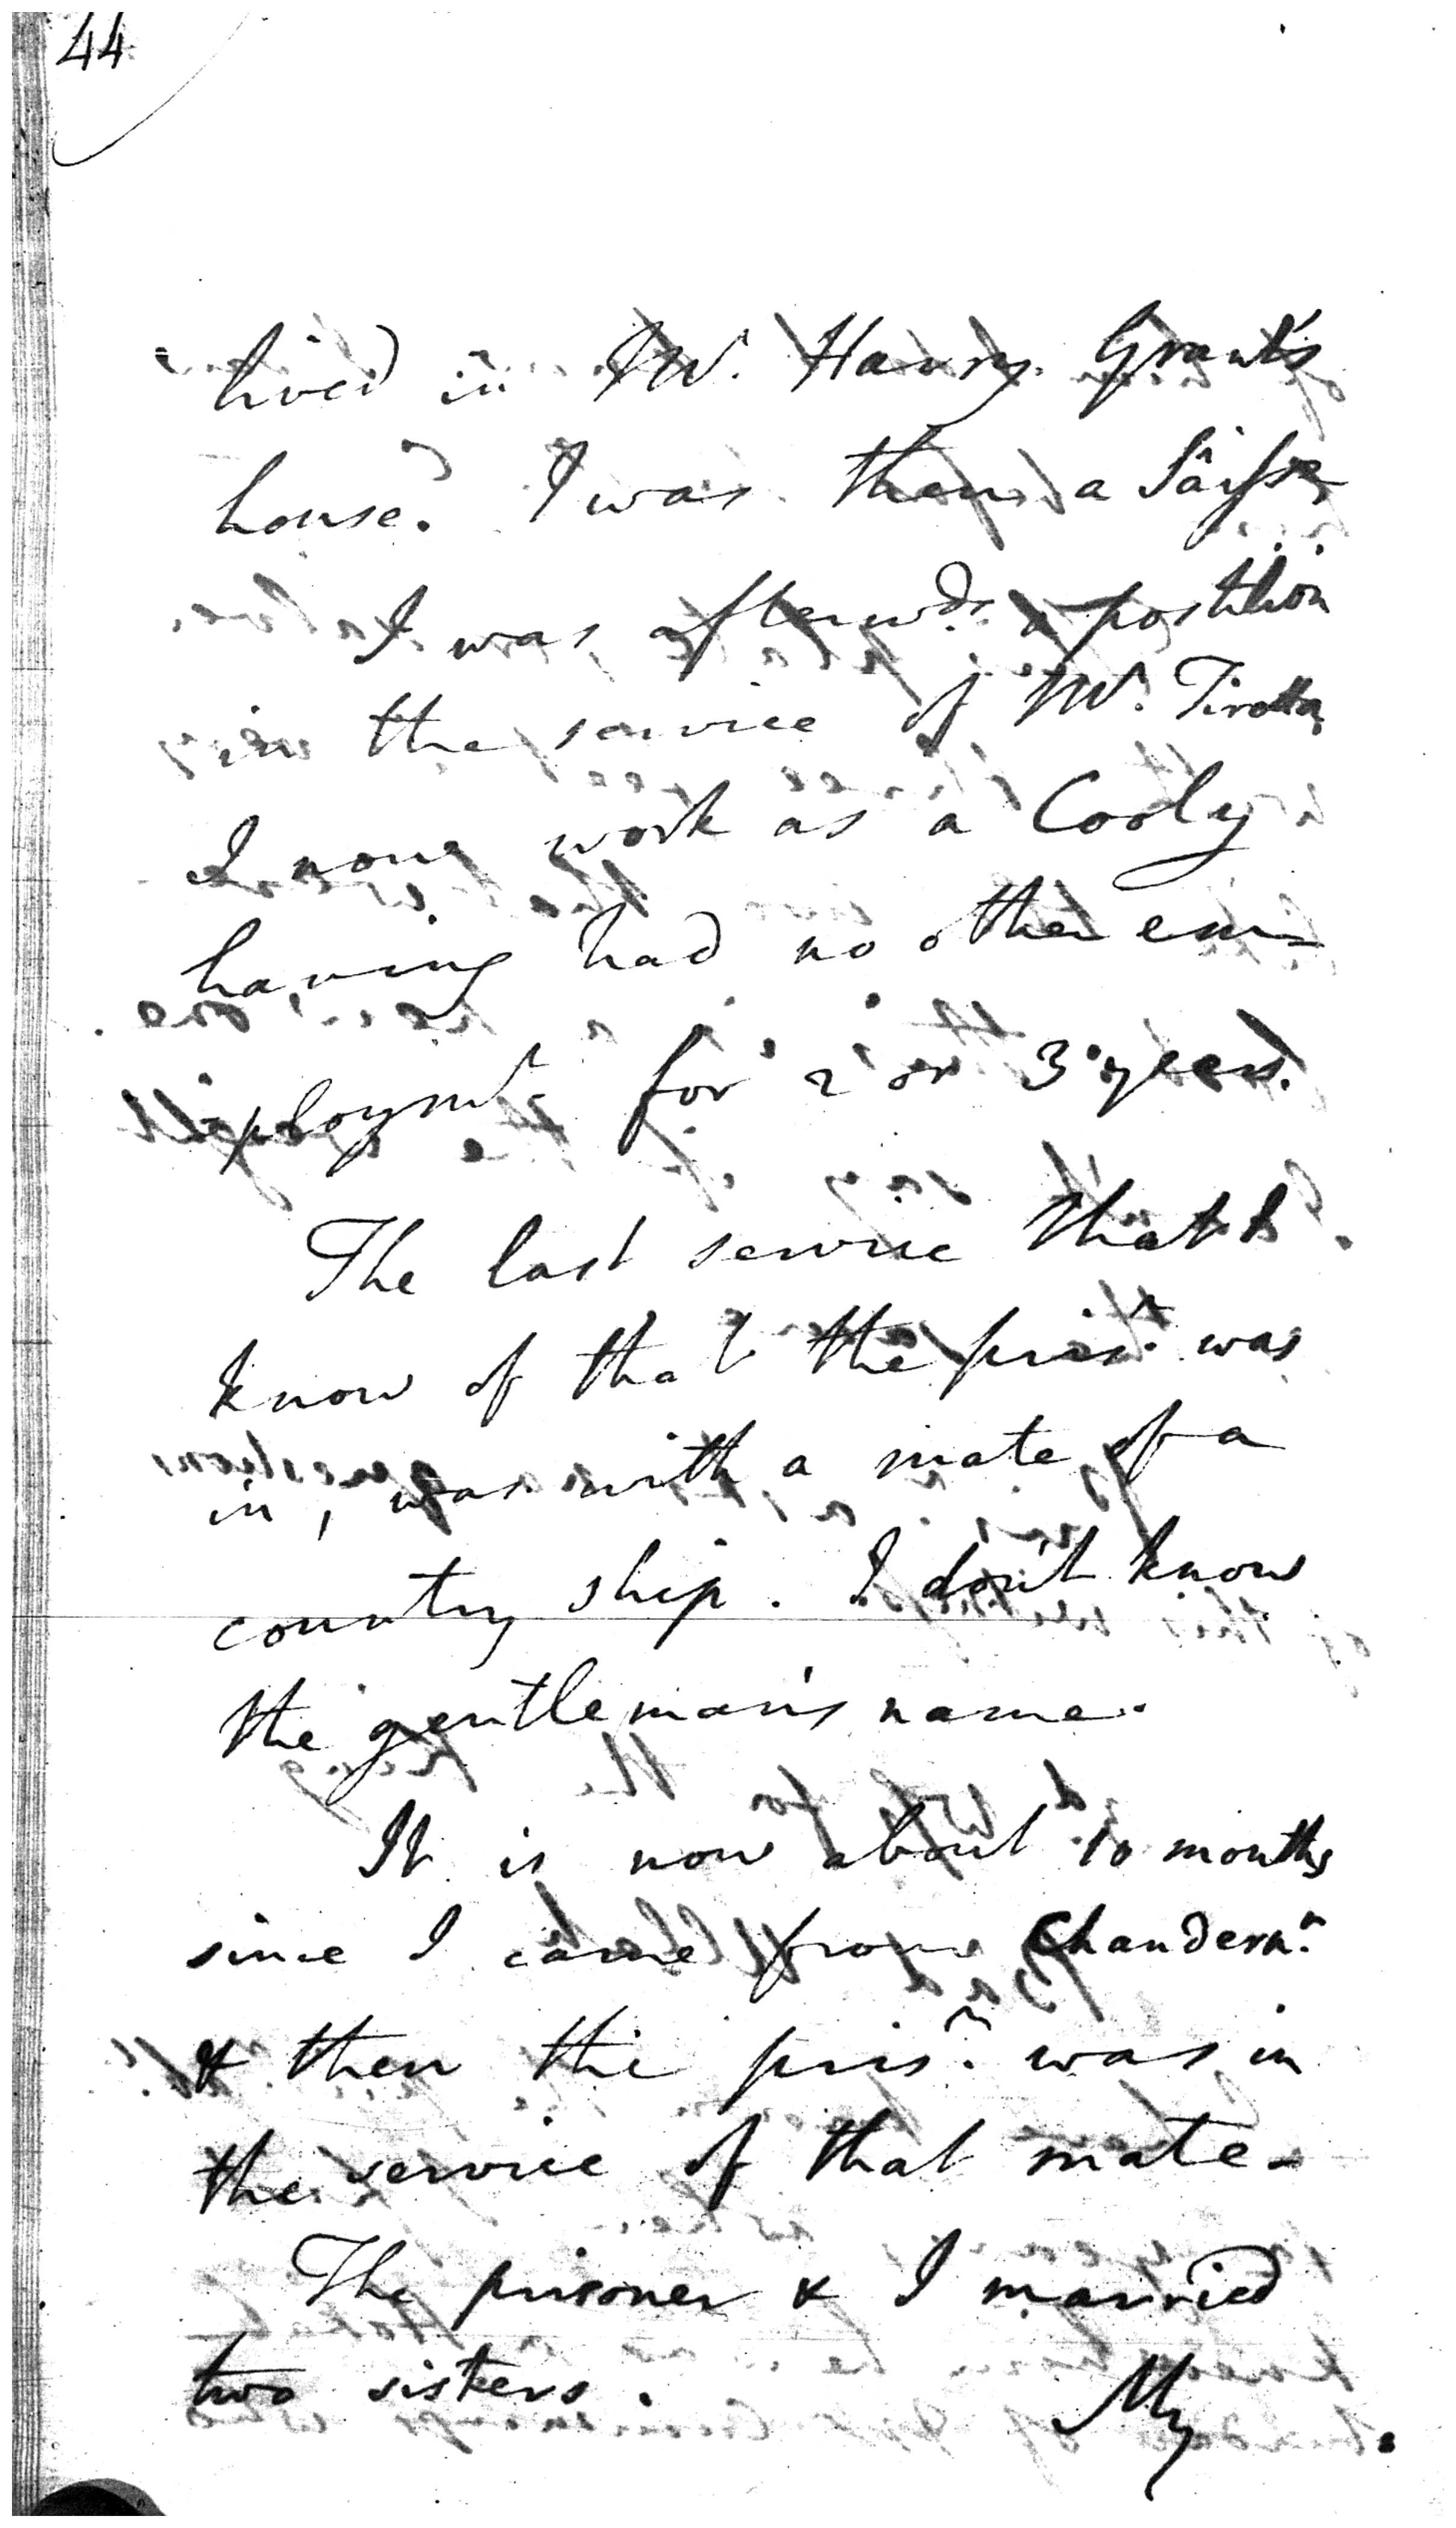 44
lived in Mr. Henry Grant's
house. I was then a Sâisse
I was afterwds a postilion
in the service of Mr. Tiretta
I now work as a Cooly
having had no other em-
ploymt. for 2 or 3 years.
The last service that I
know of that the prisr. was
in, was with a mate of a
country ship. I don't know
the gentleman's name.
It is now about 10 months
since I came from Chandern.
& then the prisr. was in
the service of that mate.
The prisoner & I married
two sisters.
My